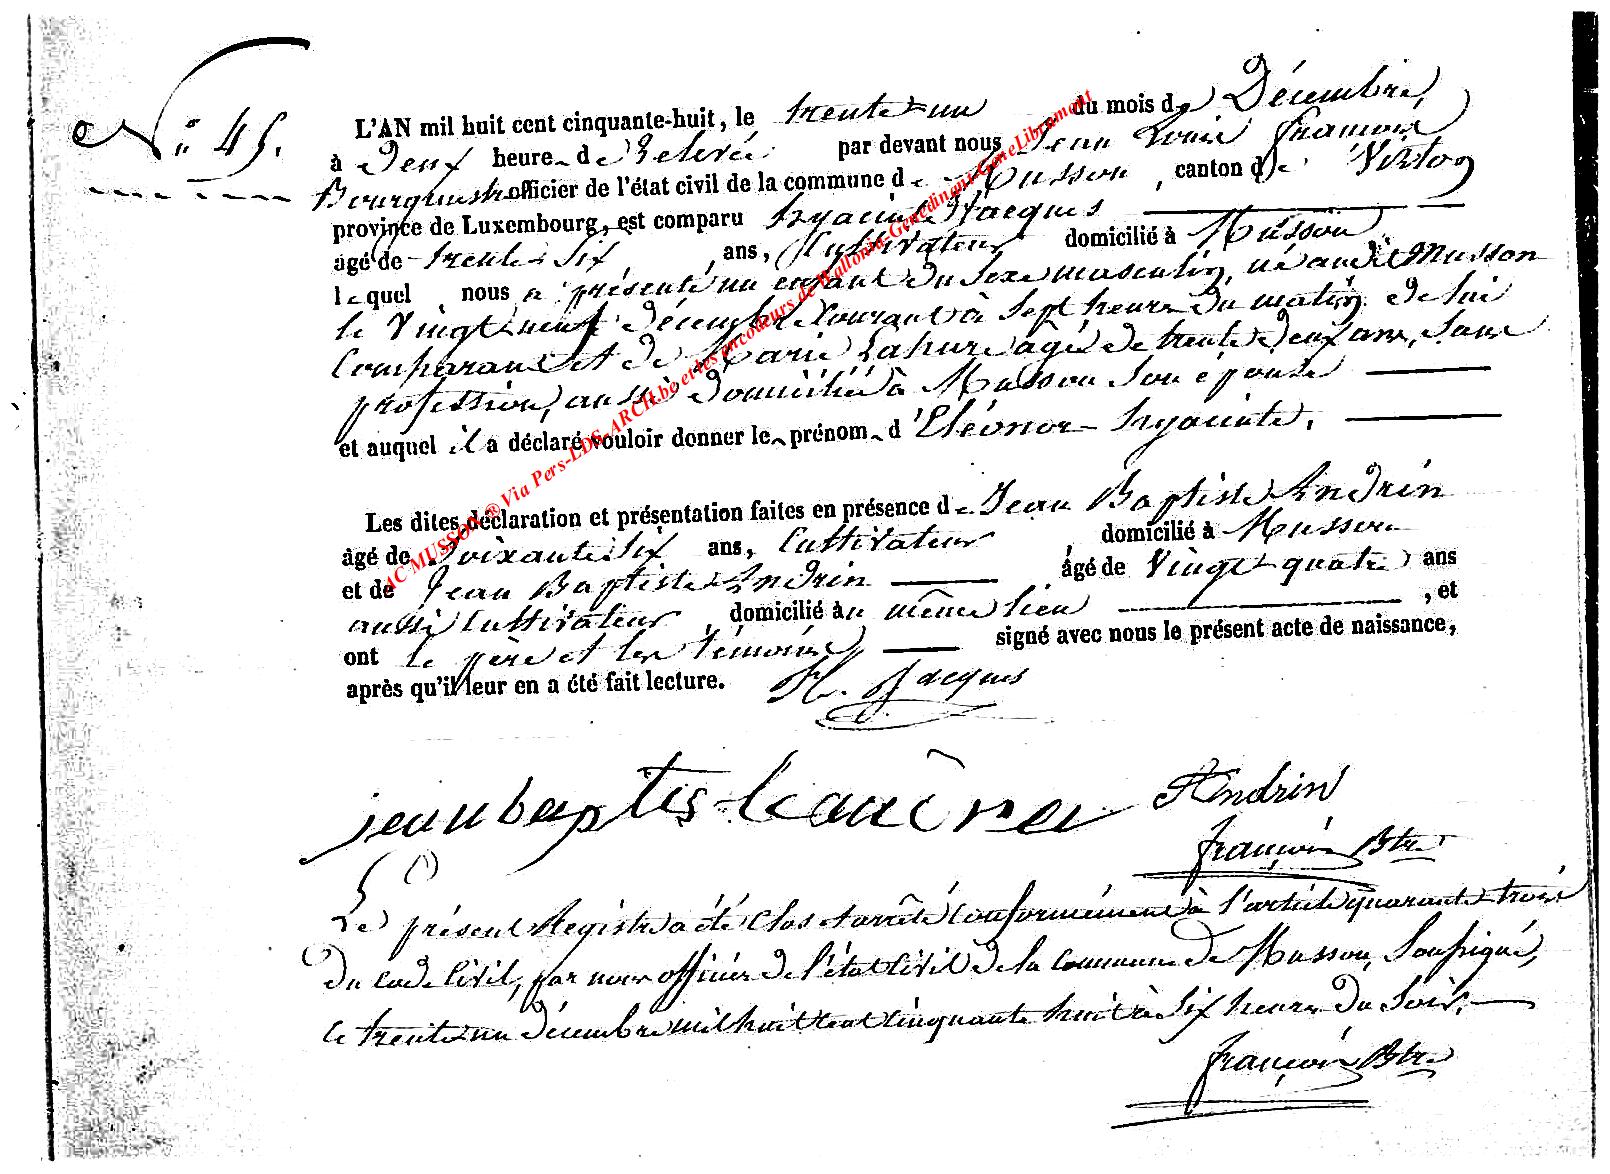 N° 45.
L'AN mil huit cent cinquante-huit, le trente-un du mois de Décembre,
à Deux heures de Relevée par devant nous Jean Louis François
Bourgmestre officier de l'état civil de la commune de Musson, canton de Virton
province de Luxembourg, est comparu hyacinte Jacques
âgé de trente-six ans, Cultivateur domicilié à Musson
lequel nous a présenté un enfant du sexe masculin, né audit Musson
le Vingt neuf décembre Courant à Sept heures du matin, de lui
Comparant et de Marie Lahure âgée de trente deux ans, Sans
profession, aussi domiciliée à Musson Son épouse
et auquel il a déclaré vouloir donner les prénoms d'Eléonor hyacinte.
Les dites déclaration et présentation faites en présence de Jean Baptiste Andrin
âgé de Soixante Six ans, Cultivateur, domicilié à Musson
et de Jean Baptiste Andrin âgé de Vingt-quatre ans
aussi Cultivateur, domicilié au même lieu, et
ont le père et les témoins signé avec nous le présent acte de naissance,
après qu'il leur en a été fait lecture. H. Jacques
jean baptis Andrin
François Btre
Le présent Registre a été Clos et arrêté Conformément à l'article quarante trois
du code Civil, par nous officier de l'état Civil de la commune de Musson, Soussigné,
le trente un décembre mil huit cent cinquante huit à Six heures du Soir.
François Btre
AC MUSSON ® Via Pers-LDS-ARCH.be et les encodeurs de Wallonia-Genedinant-GeneLibramont